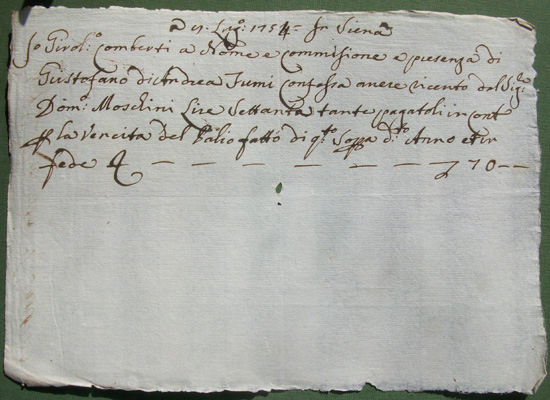 a di 7: Lug.o 1754 - In Siena
Io Girol.o Comberti a Nome e commissione e presenza di
Gustofano di Andrea Fumi Confessa avere riceuto dal Sig.e
Dom.o Moschini Lire Settanta tante pagatoli in cont
p la Vencita del Palio fatto di q.o Sopra d.o Anno et in
fede 4 — — — — — — £ 70 — —